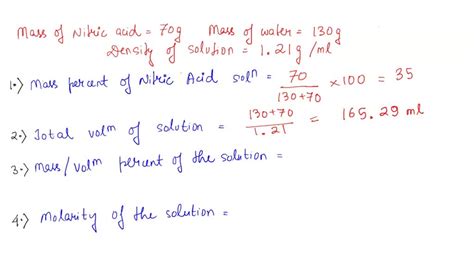 Mass of Nitric acid = 70g Mass of water = 130g
Density of solution = 1.21 g/ml
1.) Mass percent of Nitric Acid solⁿ = 70 / 130+70 × 100 = 35
2.) Total volᵐ of solution = 130+70 / 1.21 = 165.29 ml
3.) Mass/volᵐ percent of the solution =
4.) Molarity of the solution =